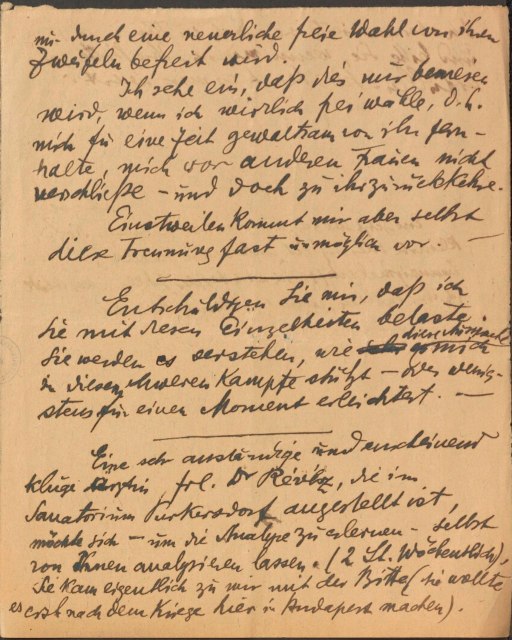 nur durch eine neuerliche freie Wahl von ihren
Zweifeln befreit wird.
Ich sehe ein, daß dies nur
wird, wenn ich wirklich frei wähle, d. h.
mich für eine Zeit gewaltsam von ihr fern-
halte, mich vor anderen Frauen nicht
verschließe – und doch zu ihr zurückkehre.
Einstweilen kommt mir aber selbst
diese Trennung fast unmöglich vor. —
Entschuldigen Sie mir, daß ich
Sie mit diesen Einzelheiten belaste.
Sie werden es verstehen, wie diese mich
in diesem schweren Kampfe stützt – oder wenig-
stens für einen Moment erleichtert. —
Eine sehr anständige und anscheinend
kluge Ärztin, Frl. Dr Révész, die im
Sanatorium Purkersdorf angestellt ist,
möchte sich – um die Analyse zu erlernen – selbst
von Ihnen analysieren lassen. (2 St. Wöchentlich).
Sie kam eigentlich zu mir mit der Bitte (sie wollte
es erst nach dem Kriege hier in Budapest machen).